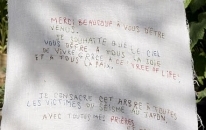 MERCI BEAUCOUP À VOUS D'ÊTRE
VENU...
JE SOUHAITE QUE LE CIEL
VOUS OFFRE À TOUS LA JOIE
DE VIVRE APRÈS DE "TREE OF LIFE"
ET À TOUS LA PAIX.
JE CONSACRE CET ARBRE À TOUTES
LES VICTIMES DU SÉISME AU JAPON
AVEC TOUTES MES PRIÈRES